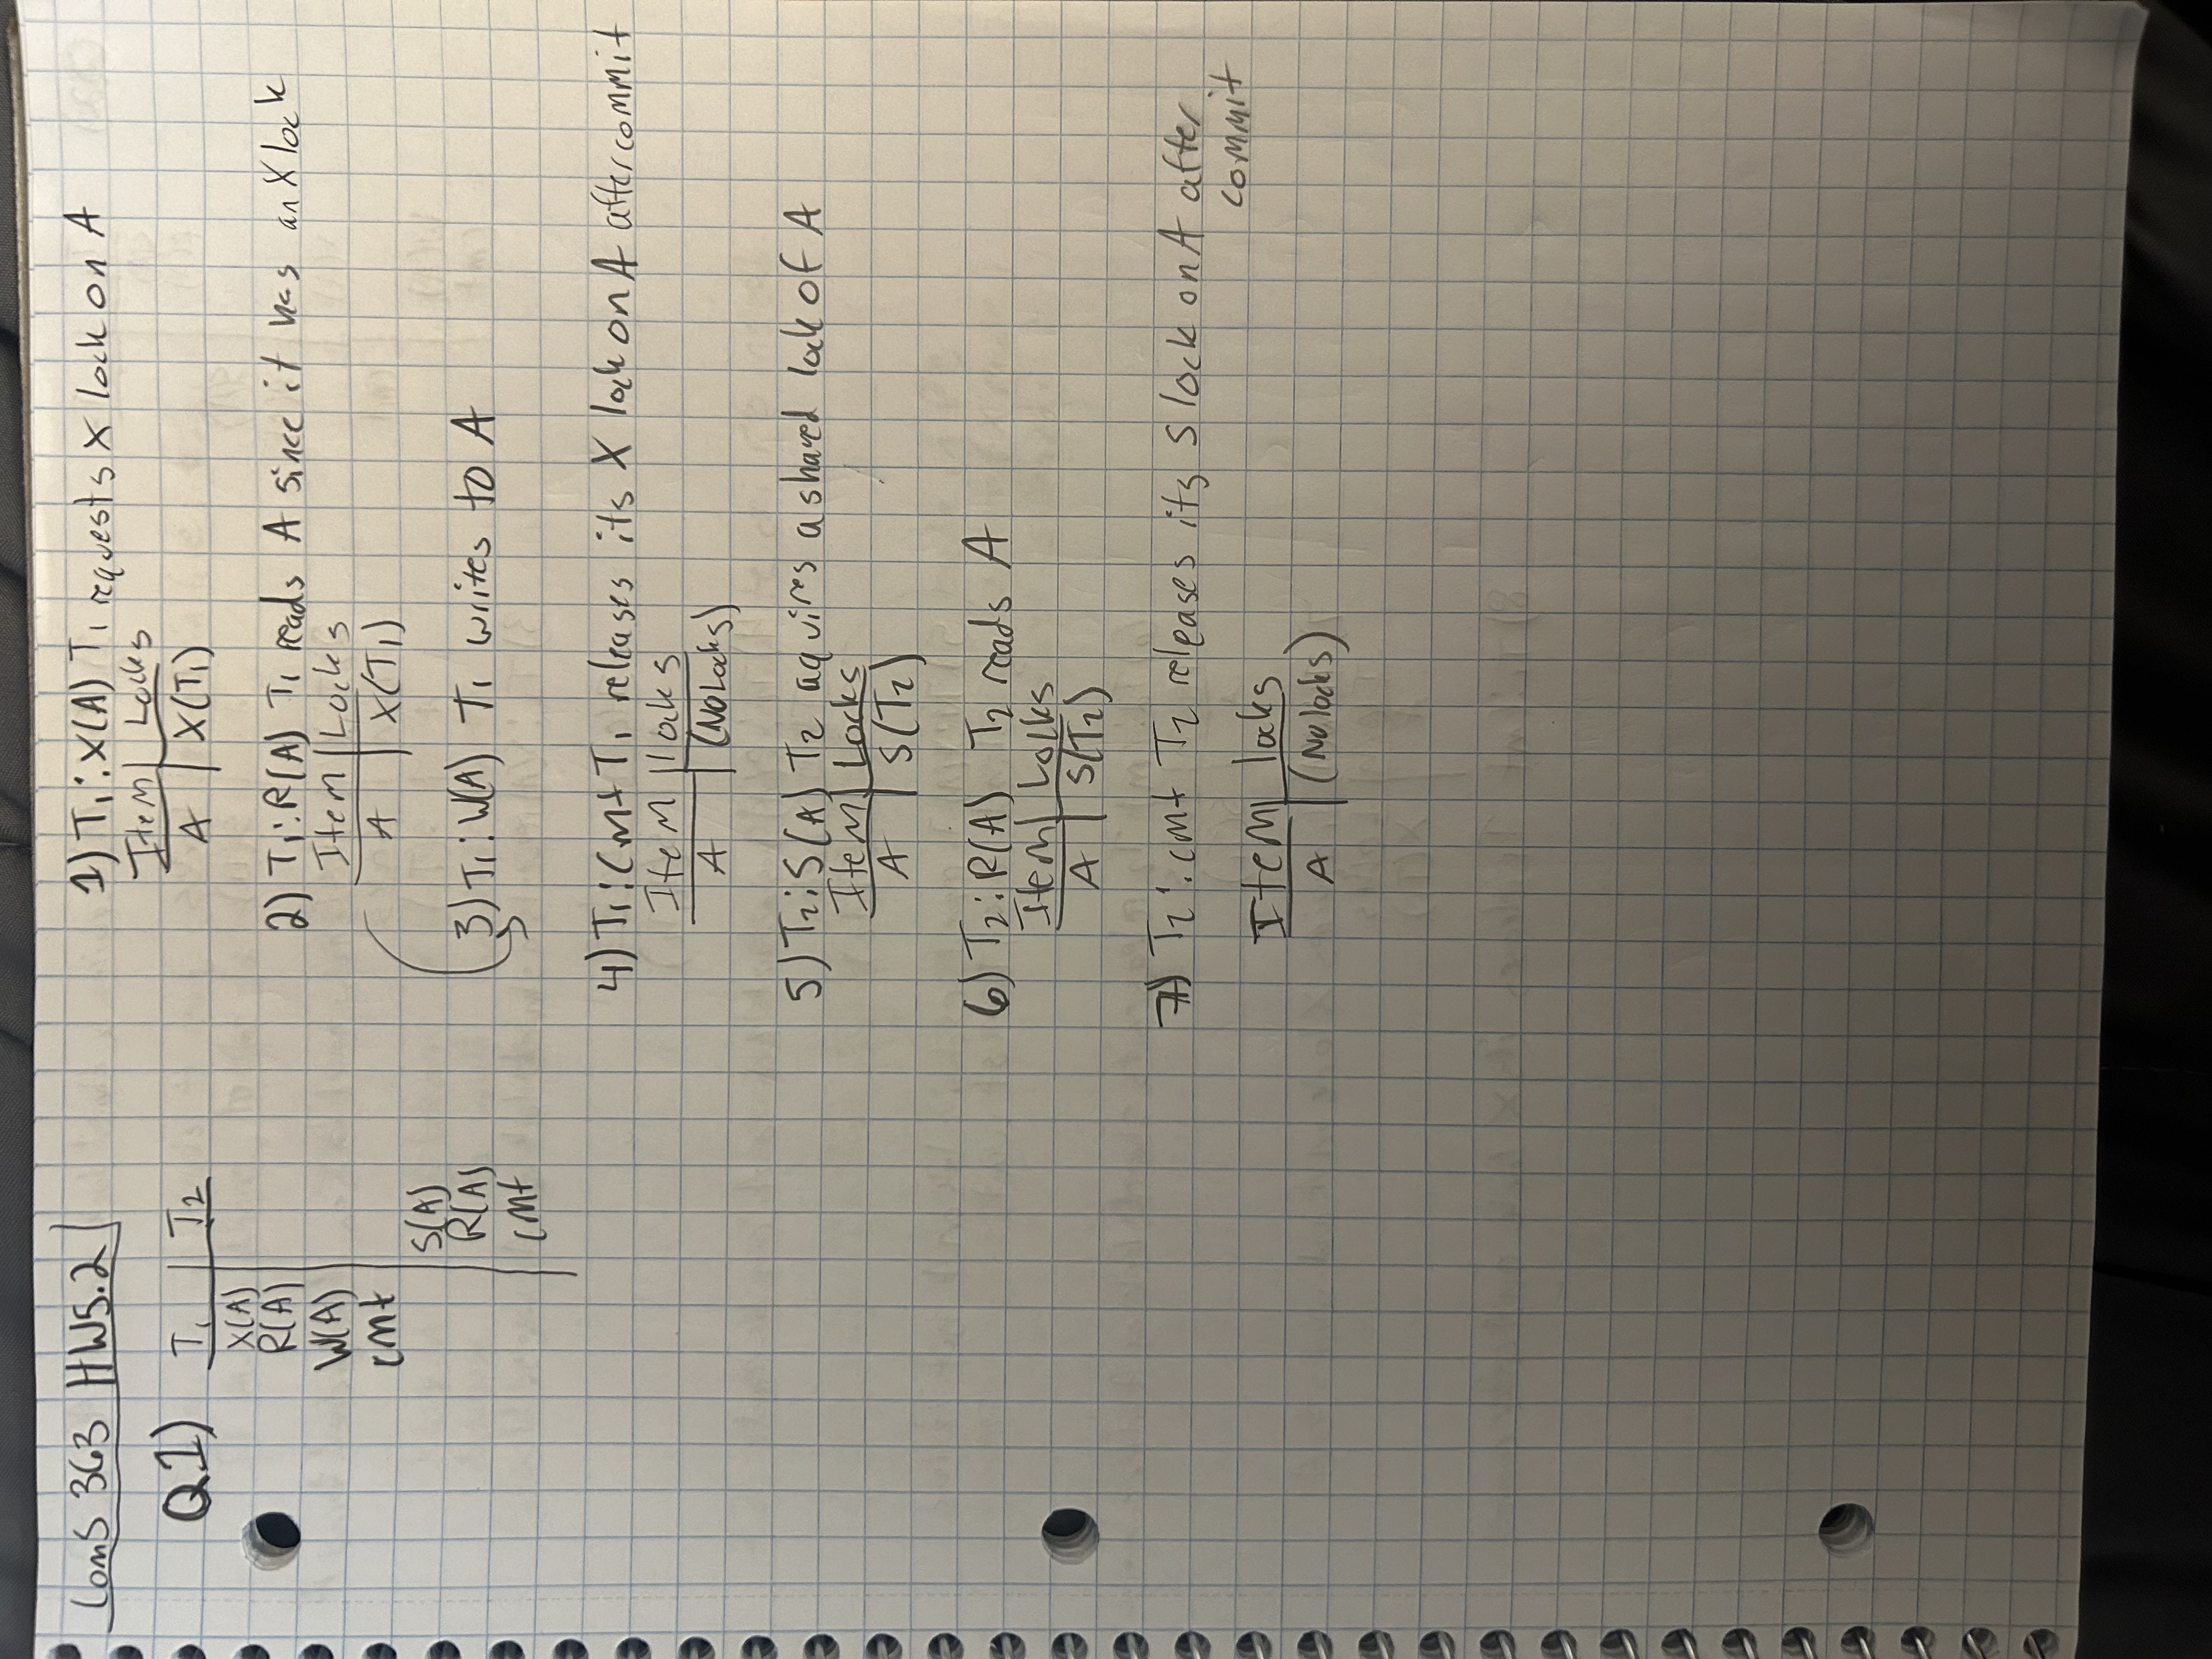 ComS 363 HW5.2
Q1)
T1 | T2
X(A)
R(A)
W(A)
cmt
S(A)
R(A)
cmt
1) T1:X(A) T1 requests X lock on A
Item | Locks
A | X(T1)
2) T1:R(A) T1 reads A since it has an X lock
Item | Locks
A | X(T1)
3) T1:W(A) T1 writes to A
4) T1:Cmt T1 releases its X lock on A after commit
Item | locks
A | (No Locks)
5) T2:S(A) T2 aquires a shared lock of A
Item | Locks
A | S(T2)
6) T2:R(A) T2 reads A
Item | Locks
A | S(T2)
7) T2:cmt T2 releases its S lock on A after
commit
Item | locks
A | (No locks)